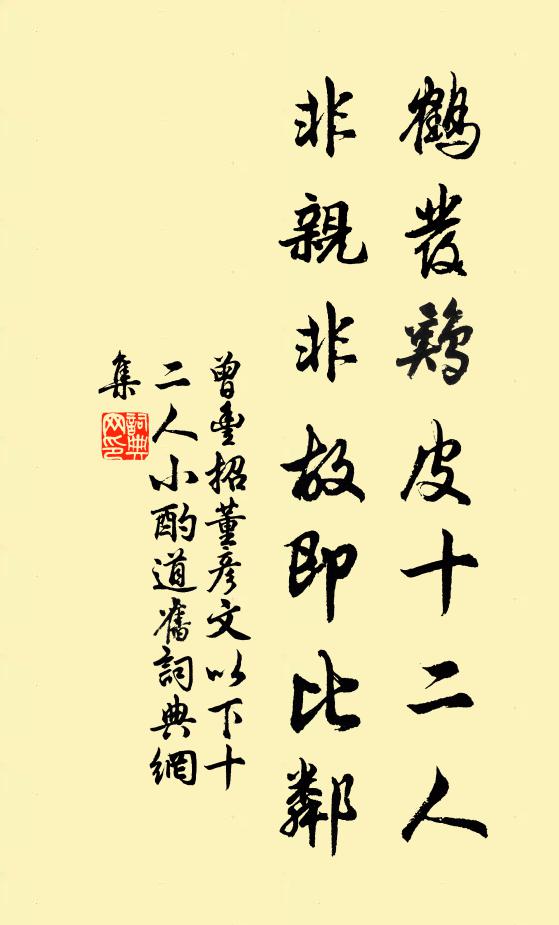 鶴發鷄皮十二人
非親非故即比鄰
曾豊招董彥文以下十
二人小酌道舊詞典網
集
詞典
网印